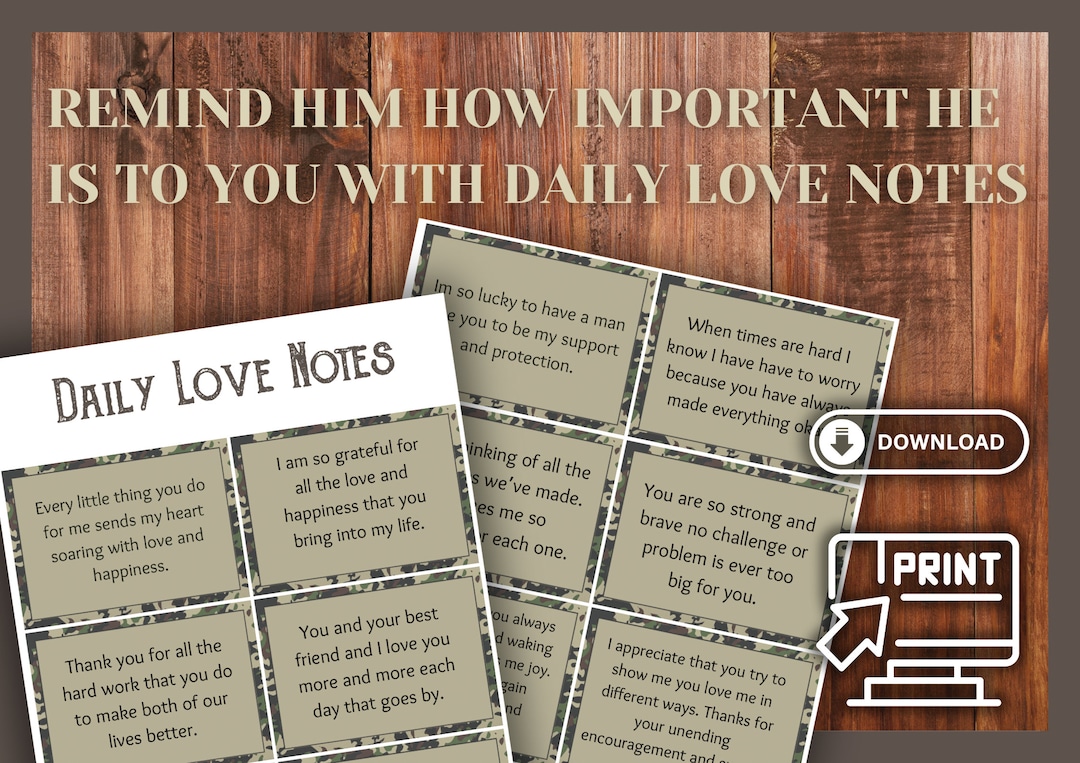 REMIND HIM HOW IMPORTANT HE
IS TO YOU WITH DAILY LOVE NOTES
DAILY LOVE NOTES
Every little thing you do
for me sends my heart
soaring with love and
happiness.
I am so grateful for
all the love and
happiness that you
bring into my life.
Thank you for all the
hard work that you do
to make both of our
lives better.
You and your best
friend and I love you
more and more each
day that goes by.
Im so lucky to have a man
you to be my support
and protection.
When times are hard I
know I have have to worry
because you have always
made everything
of all the
we've made.
me so
each one.
You are so strong and
brave no challenge or
problem is ever too
big for you.
you always
waking
me joy.
I appreciate that you try to
show me you love me in
different ways. Thanks for
your unending
encouragement and
DOWNLOAD
PRINT